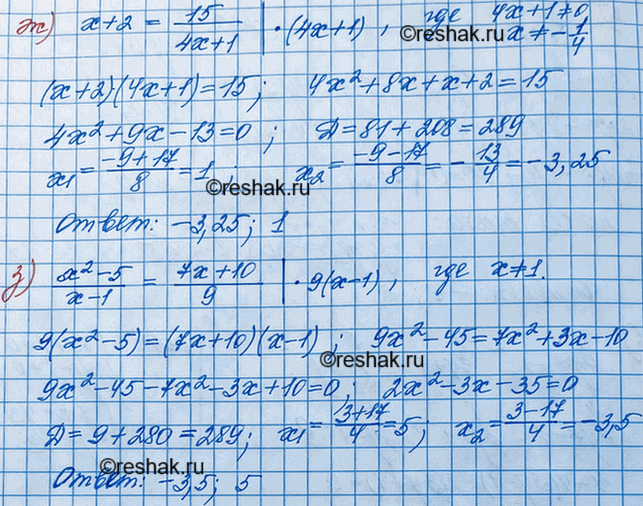 ж) x+2 = 15/(4x+1) | · (4x+1), где 4x+1≠0
x ≠ -1/4
©reshak.ru
(x+2)(4x+1)=15; 4x²+8x+x+2=15
4x²+9x-13=0; D=81+208=289
x₁ = (-9+17)/8 = 1; x₂ = (-9-17)/8 = -13/4 = -3,25
©reshak.ru
Ответ: -3,25; 1
з) (x²-5)/(x-1) = (7x+10)/9 | · 9(x-1), где x≠1.
9(x²-5)=(7x+10)(x-1); 9x²-45=7x²+3x-10
©reshak.ru
9x²-45-7x²-3x+10=0; 2x²-3x-35=0
D=9+280=289; x₁ = (3+17)/4 = 5; x₂ = (3-17)/4 = -3,5
©reshak.ru
Ответ: -3,5; 5